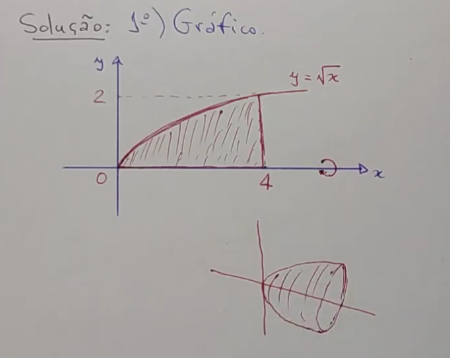 Solução: 1º) Gráfico.
y
y = √x
2
0
4
x